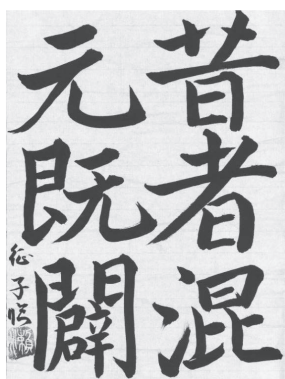 昔者混
元既闢
征子临